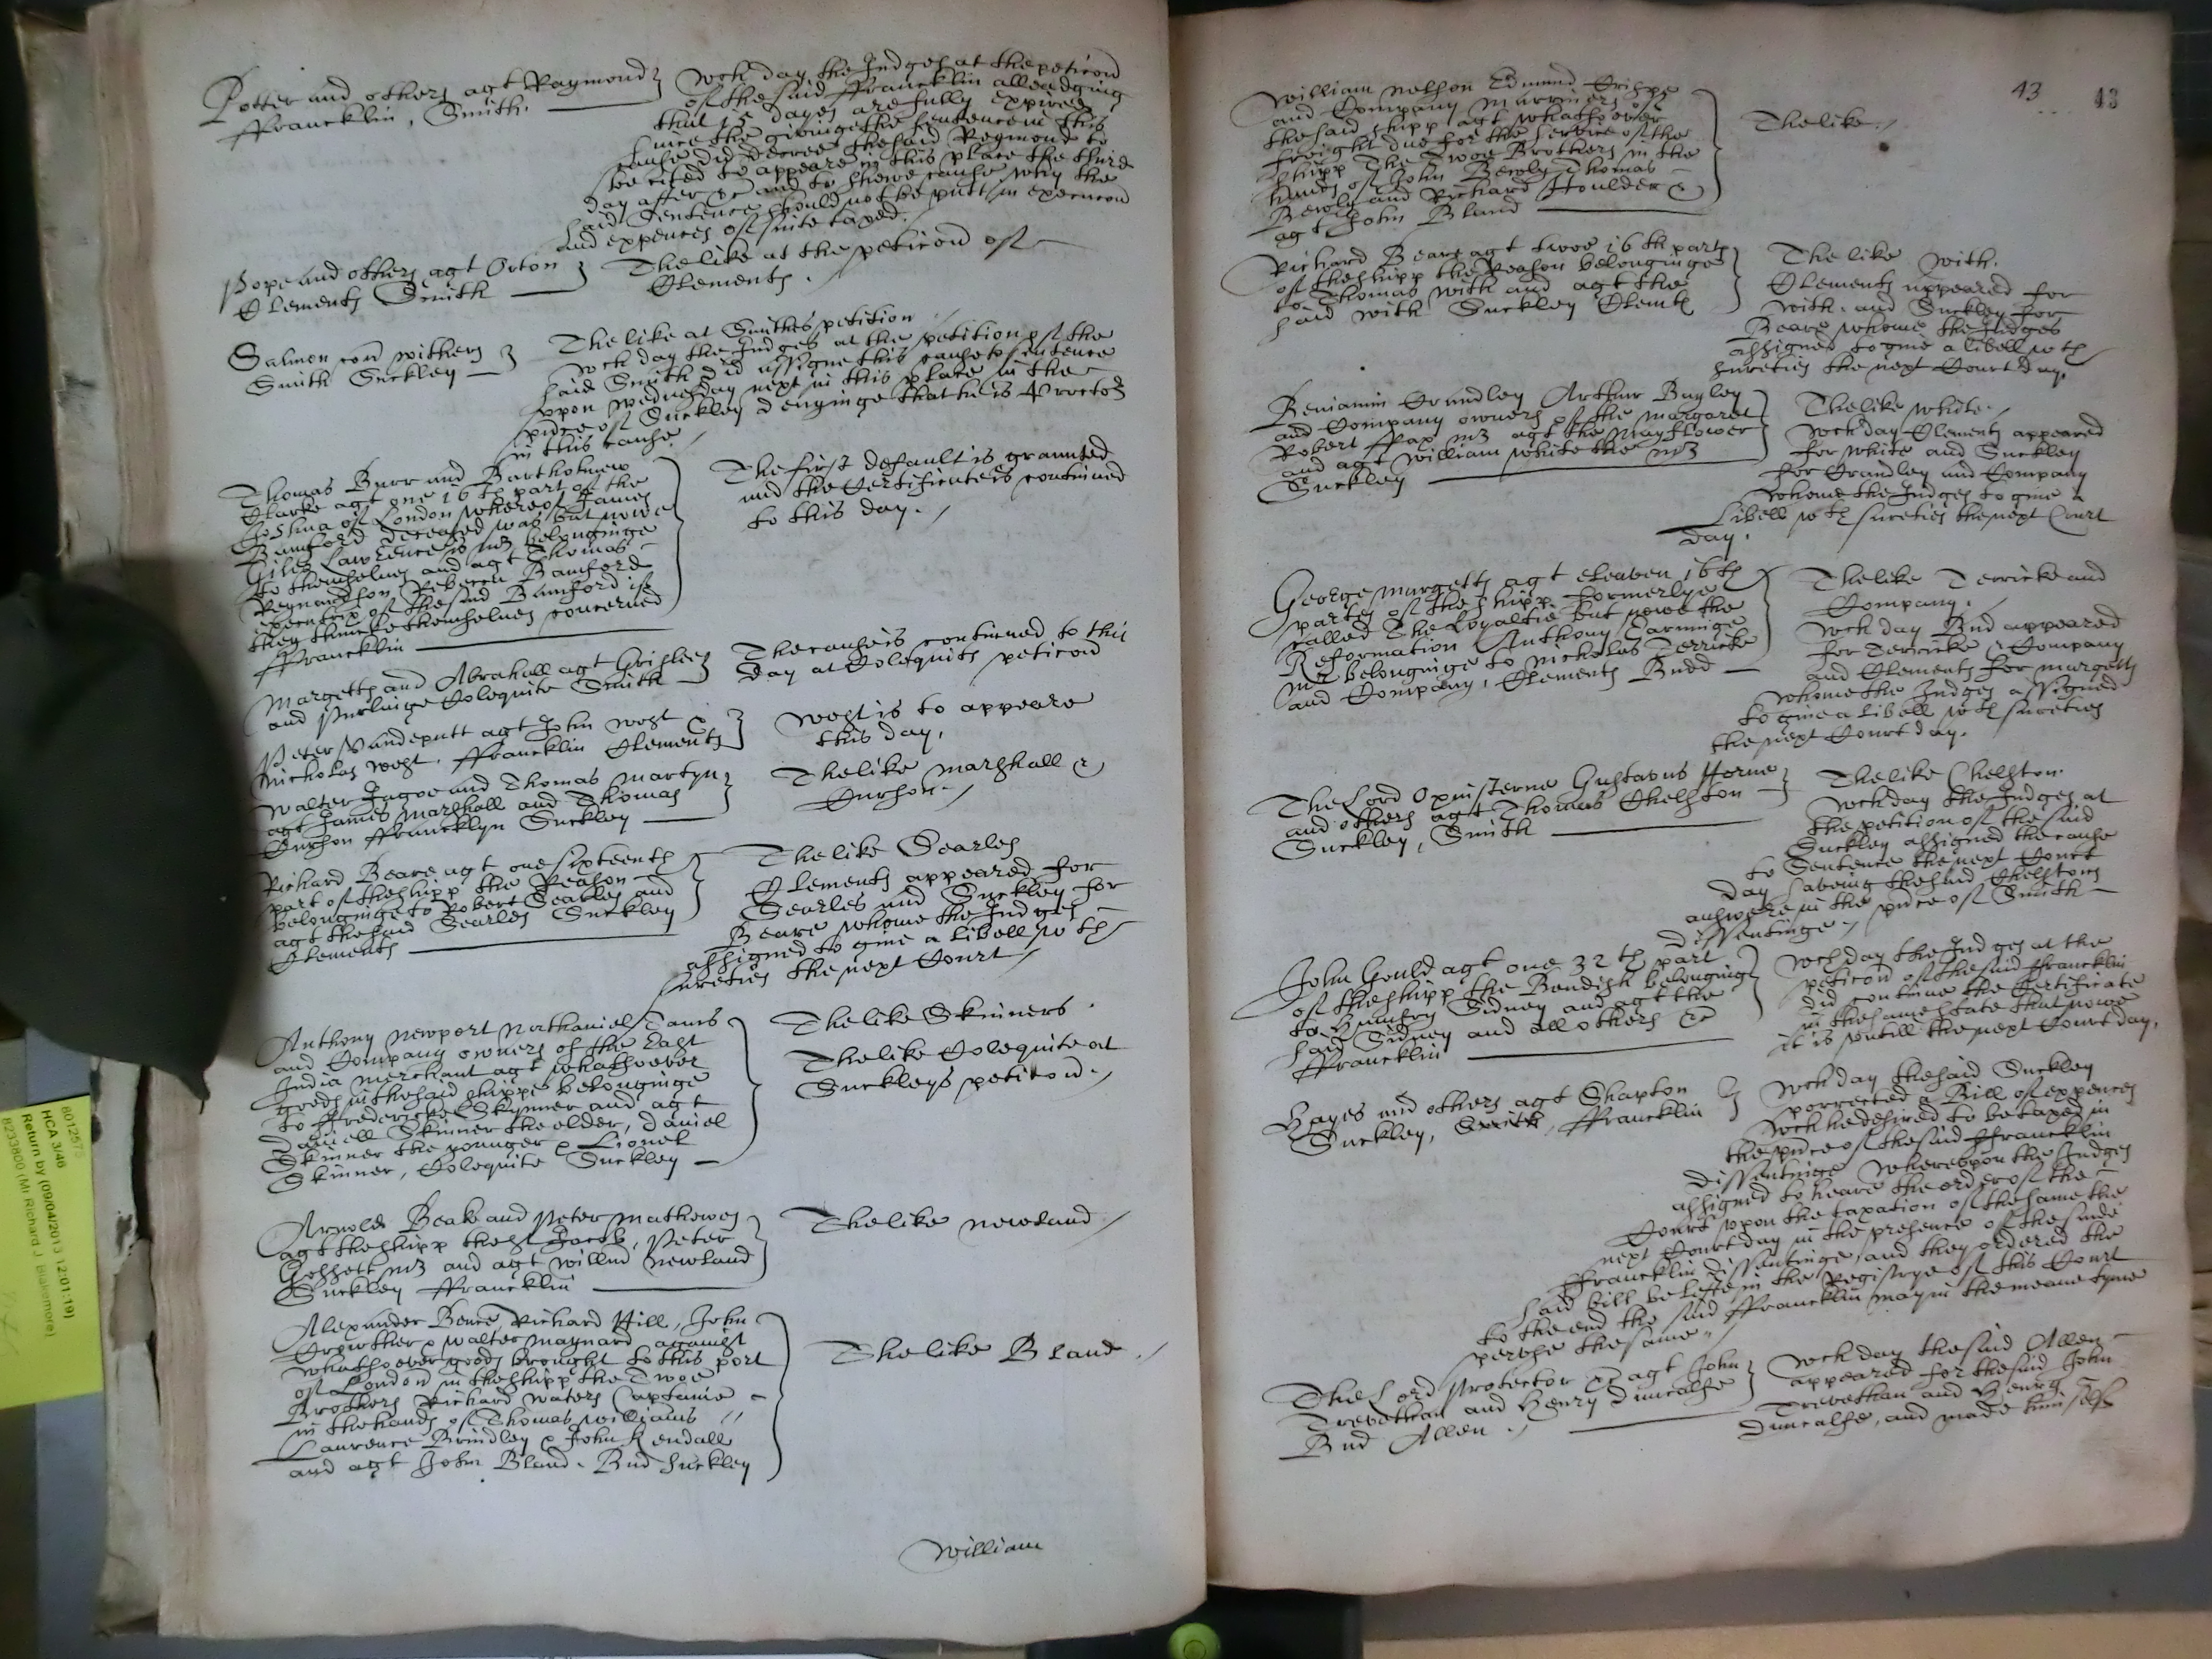 Potter and others agt Raymond
Francklin, Smith.
wch day the Judges at the peticion
of the said Francklin alleadging
that 15 dayes are fully expired
since the givinge the sentence in this
cause did decree the said Raymond to
be cited to appeare in this place the third
day after &c and to shewe cause why the
said Sentence should not be putt in execucion
and expences of suite taxed.
Pope and others agt Orton
Clements Smith
The like at the peticion of
Clements.
Salmon con withers
Smith Suckley
The like at Smithes petition
wch day the Judges at the petition of the
said Smith did assigne this cause to sentence
upon wednesday next in this place in the
pnce of Suckley denyinge that he is Proctor
in this cause
Thomas Burr and Bartholmew
Clarke agt one 16th part of the
Joshua of London whereof James
Bamford deceased was but nowe
Giles Lawrence is mr belonginge
to themselves and agt Thomas
Regnardson Rebecca Bamford
executrix of the said Bamford if
they thincke themselves concerned
Francklin
The first default is graunted
and the Certificate is continued
to this day.
Margetts and Abrahall agt Grisley
and Purlinge Colequite Smith
The cause is continued to this
day at Colequits peticion
Peter Vandeputt agt John west &
Nicholas west. Francklin Clements
west is to appeare
this day.
Walter Jagoe and Thomas Martyn
agt James Marshall and Thomas
Curson Francklyn Suckley
The like Marshall &
Curson
Richard Beare agt one sixteenth
part of the shipp the Reason
belonginge to Robert Searles and
agt the said Searles Suckley
Clements
The like Searles
Clements appeared for
Searles and Suckley for
Beare whome the Judges
assigned to give a libell wth
sureties the next Court
Anthony Newport Nathaniel Tams
and Company owners of the East
India Merchant agt whatsoever
goods in the said shippe belonginge
to Fredericke Skynner and agt
Daniell Skinner the elder, Daniel
Skinner the younger & Lionel
Skinner, Colequite Suckley
The like Skinners.
The like Colequite at
Suckleys peticion.
Arnold Beake and Peter Mathewes
agt the shipp the St Jacob, Peter
Gossett mr and agt Willm Newland
Suckley Francklin
The like Newland
Alexander Bence, Richard Hill, John
Crowther & Walter Maynard against
whatsoever goods brought to this port
of London in the shipp the Two
Brothers Richard Waters Captaine
in the hands of Thomas Williams
Laurence Brindley & John Kendall
and agt John Bland. Bud Suckley
The like Bland.
William
43 43
William Nelson Edmund Crispe
and Company Marriners of
the said shipp agt whatsoever
freight due for the service of the
shipp The Twoe Brothers in the
hands of John Bewly Thomas
Bewly and Richard Houlder &
agt John Bland
The like
Richard Beare agt twoe 16th parts
of the shipp the Reason belonginge
to Thomas with and agt the
said with Suckley Clemts
The like with.
Clements appeared for
with. and Suckley for
Beare whome the Judges
assigned to give a libell wth
sureties the next Court day.
Beniamin Crandley Arthur Bayley
and Company owners of the Margaret
Robert Fax mr agt the Mayflower
and agt William White the mr
Suckley
The like White.
wch day Clements appeared
for White and Suckley
for Crandley and Company
whome the Judges to give a
Libell wth sureties the next Court
day.
George Margetts agt eleaven 16th
partes of the shipp formerlye
called The Loyaltie but nowe the
Reformation Anthony Earninge
mr belonginge to Nicholas Terricke
and Company, Clements Budd
The like Terricke and
Company.
wch day Bud appeared
for Terricke & Company
and Clements for Margetts
whome the Judges assigned
to give a libell wth sureties
the next Court day.
The Lord Oxinsterne Gustavus Horne
and others agt Thomas Chelston
Suckley, Smith
The like Chelston.
wch day the Judges at
the petition of the said
Suckley assigned the cause
to Sentence the next Court
day saving the said Chelstons
answere in the pnce of Smith
dissentinge
John Gould agt one 32th part
of the shipp the Bendish belonging
to Humfry Sidney and agt the
said Sidney and all others &c
Francklin
wch day the Judges at the
peticion of the said Francklin
did continue the Certificate
in the same state that nowe
it is untill the next Court day.
Hayes and others agt Shapton
Suckley, Smith, Francklin
wch day the said Suckley
porrected a Bill of expences
wch he desired to be taxed in
the pnce of the said Francklin
dissentinge whereupon the Judges
assigned to heare the order of the
Court upon the taxation of the same the
next Court day in the presence of the said
Francklin dissentinge, and they ordered the
said bill be left in the Registrye of this Court
to the end the said Francklin may in the meane tyme
peruse the same
The Lord Protector &c agt John
Trevethan and Henry Duncalfe
Bud Allen
wch day the said Allen
appeared for the said John
Trevethan and Henry
Duncalfe, and made himself
801257
HCA 3/46
Return by (09/04/2013 12:01:19)
8233800 (Mr Richard J Blakemore)